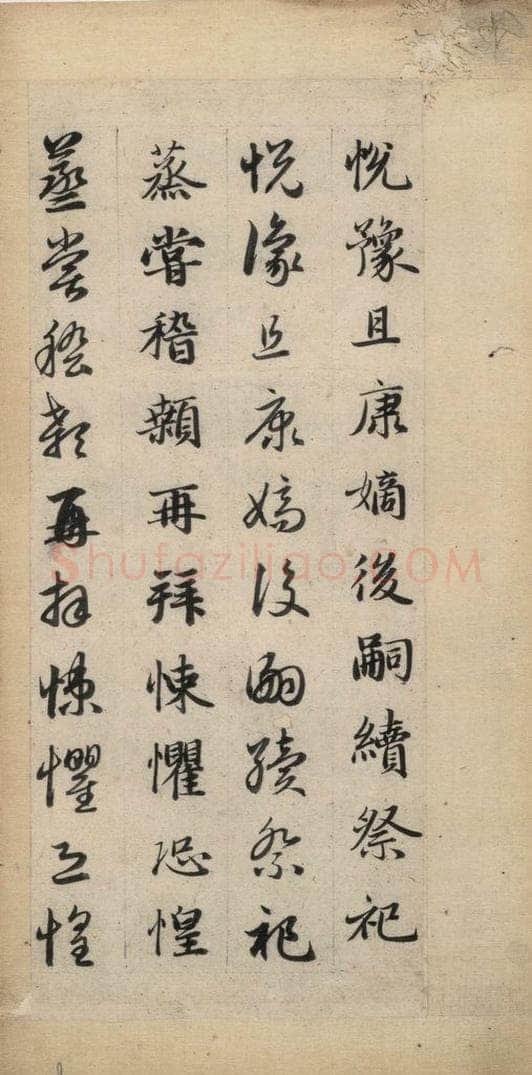 悦豫且康嫡後嗣續祭祀
悦豫且康嫡後嗣續祭祀
蒸嘗稽顙再拜悚懼恐惶
蒸嘗稽顙再拜悚懼恐惶
Shufaziliao.COM